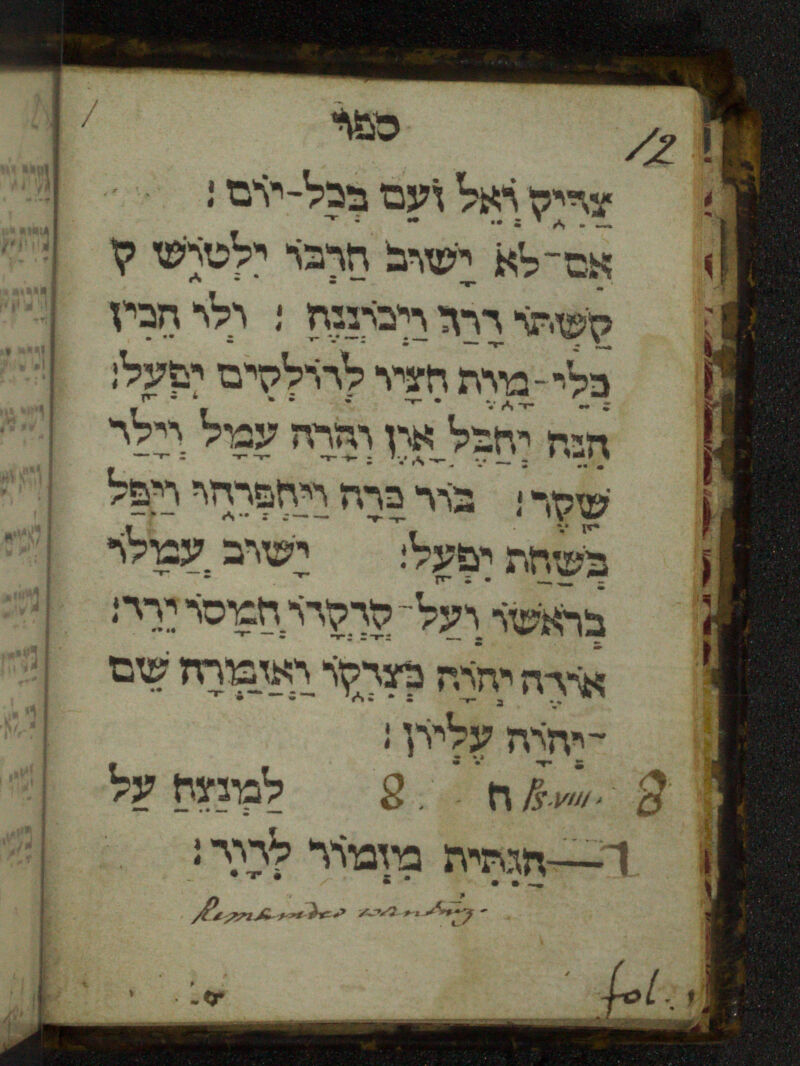 ספר
12
צַדִּיק וְאֵל זֹעֵם בְּכָל-יוֹם :
אִם־לֹא יָשׁוּב חַרְבּוֹ יִלְטוֹשׁ ק
קַשְׁתּוֹ דָרַךְ וַיְכוֹנְנֶהָ : ולו הֵכִין
כְּלֵי-מָוֶת חִצָּיו לְדוֹלְקִים יִפְעָל:
הִנֵּה יְחַבֶּל אָוֶן וְהָרָה עָמָל וְיָלַד
שָׁקֶר: בּוֹר כָּרָה וַיַּחְפְּרֵהוּ וַיִּפֹּל
בְּשַׁחַת יִפְעָל: יָשׁוּב עֲמָלוֹ
בְרֹאשׁוֹ וְעַל־קָדְקֳדוֹ חֲמָסוֹ יֵרֵד:
אוֹדֶה יְהוָה כְּצִדְקוֹ וַאֲזַמְּרָה שֵׁם
־יְהוָה עֶלְיוֹן :
8 Ps. viii. ח 8. לַמְנַצֵּחַ עַל
ד—הַגִּתִּית מִזְמוֹר לְדָוִד:
Remainder wanting.
fol.